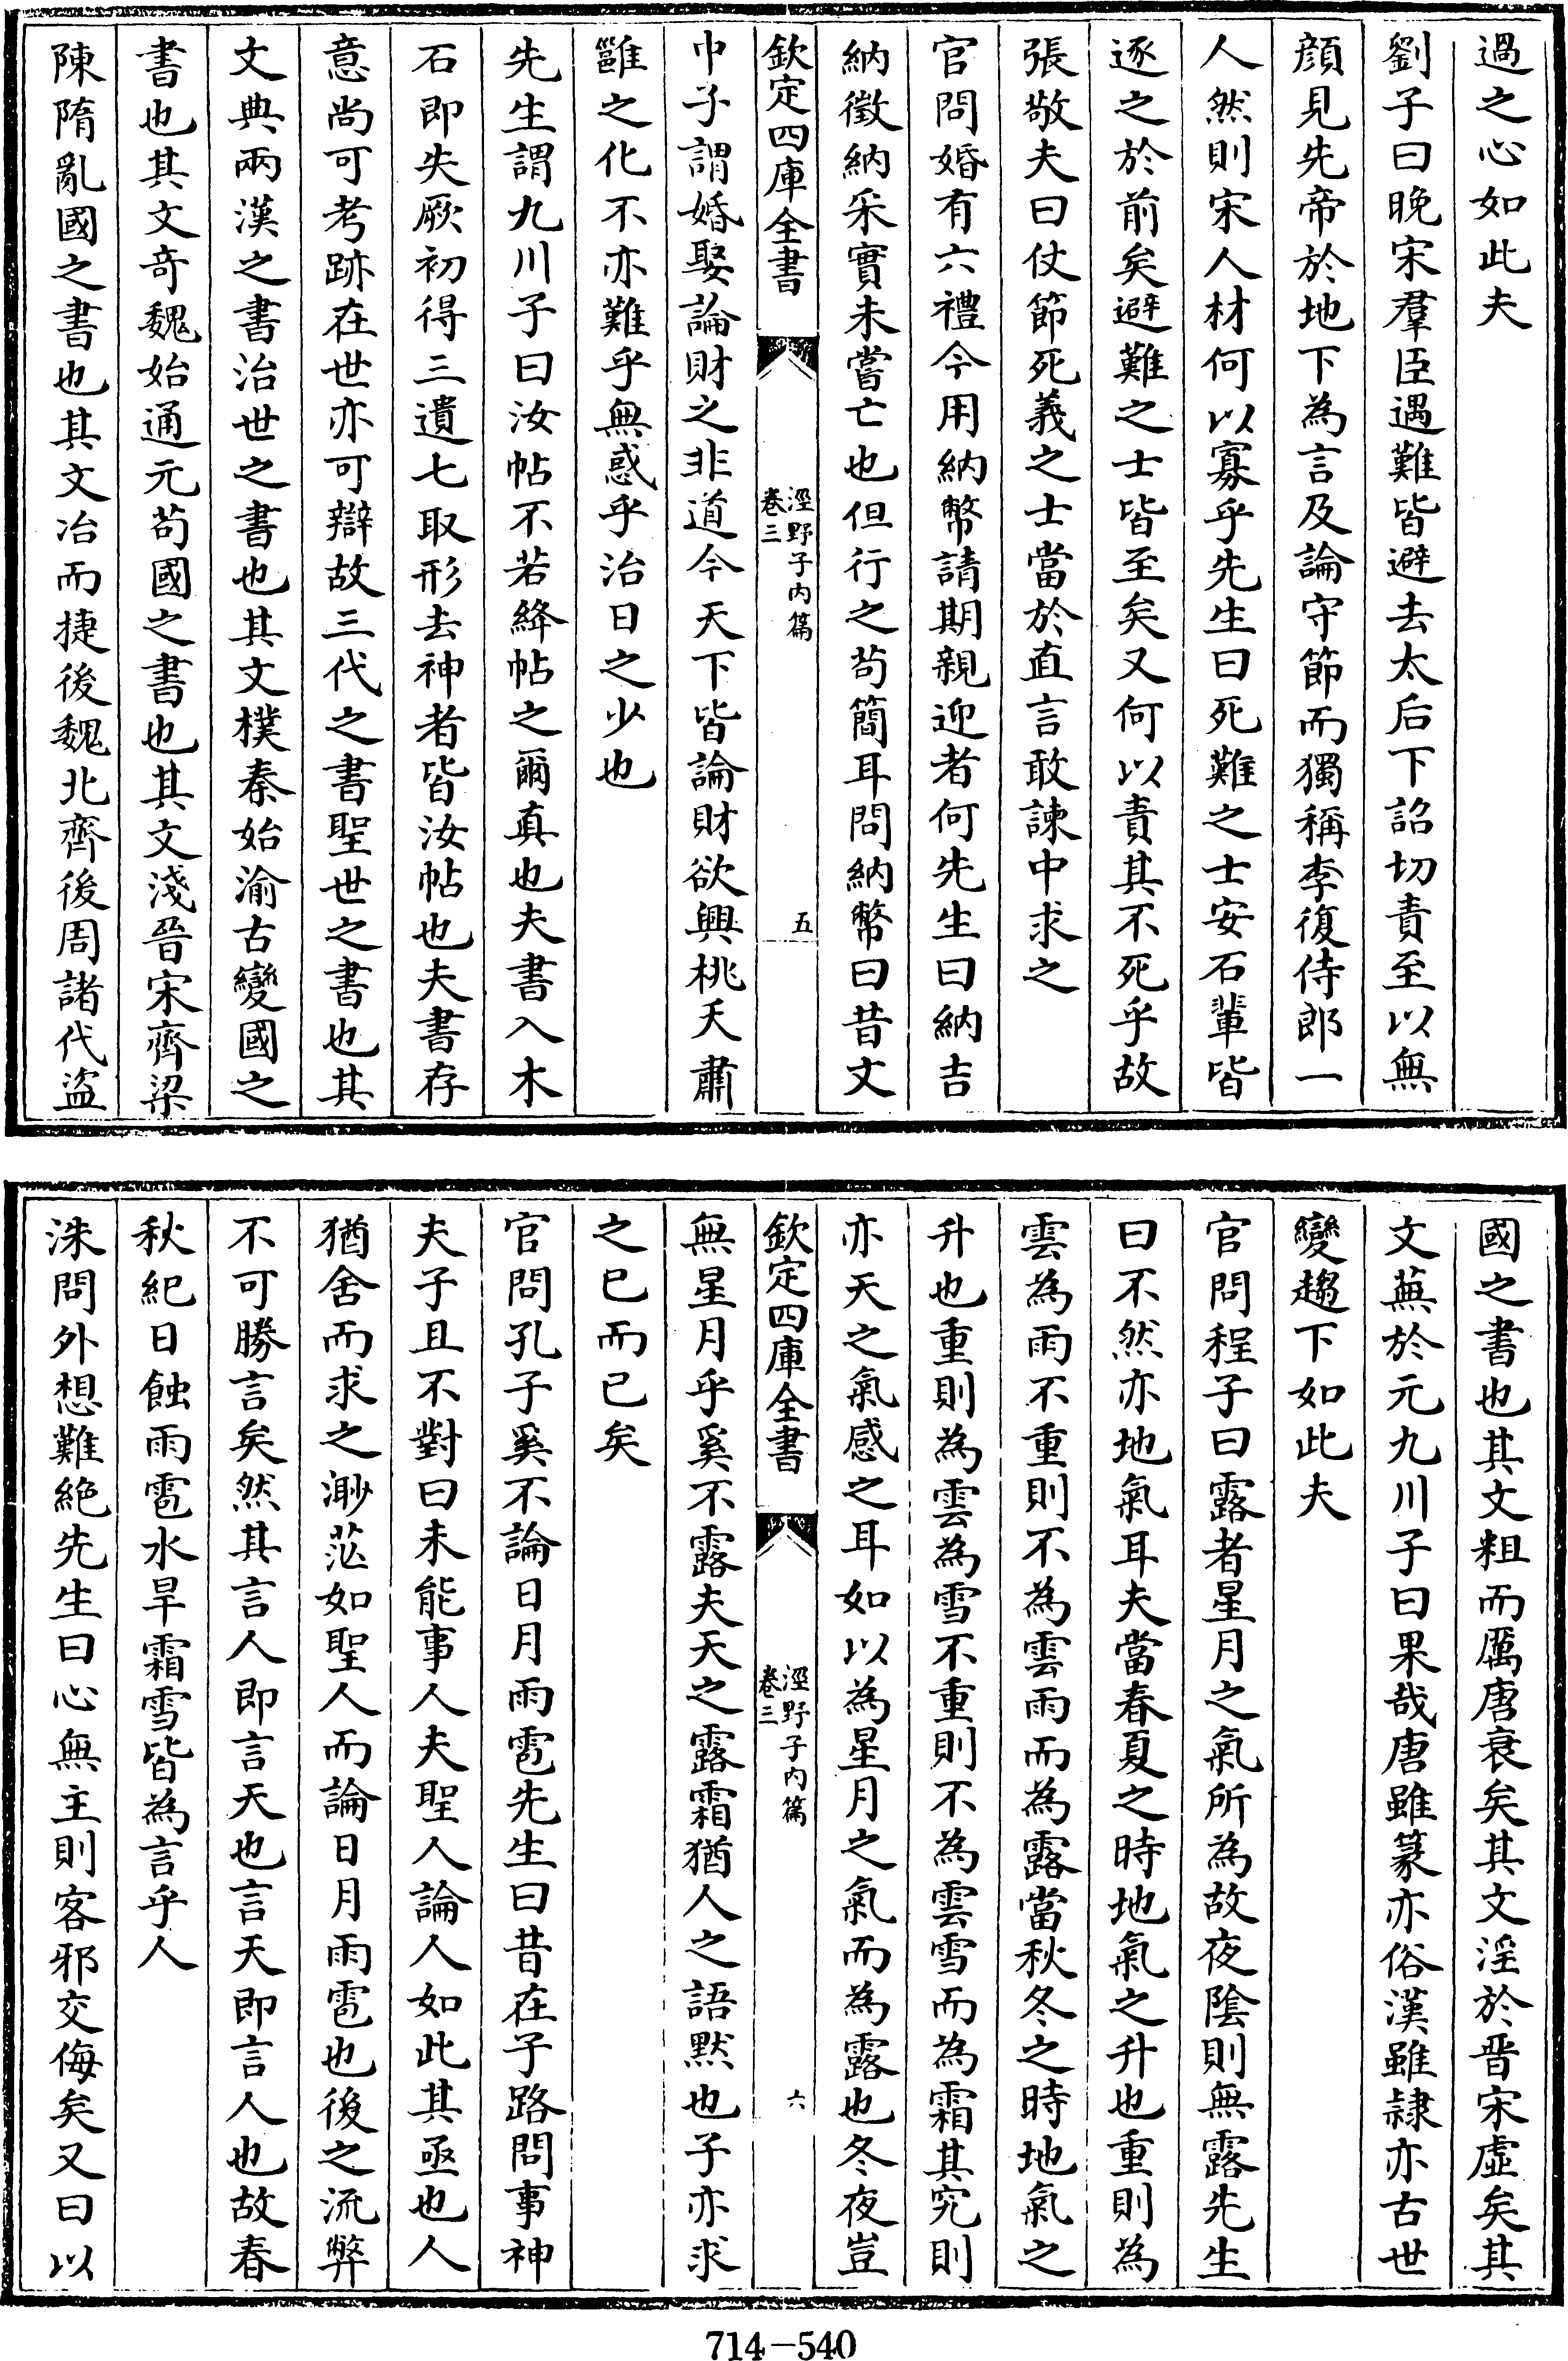 過之心如此夫
劉子曰晚宋羣臣遇難皆避去太后下詔切責至以無
顔見先帝於地下為言及論守節而獨稱李復侍郎一
人然則宋人材何以寡乎先生曰死難之士安石輩皆
逐之於前矣避難之士皆至矣又何以責其不死乎故
張敬夫曰仗節死義之士當於直言敢諫中求之
官問婚有六禮今用納幣請期親迎者何先生曰納吉
納徵納采實未嘗亡也但行之苟簡耳問納幣曰昔文
欽定四庫全書
涇野子内篇
卷三
五
中子謂婚娶論財之非道今天下皆論財欲興桃夭肅
雝之化不亦難乎無惑乎治日之少也
先生謂九川子曰汝帖不若絳帖之爾真也夫書入木
石即失厥初得三遺七取形去神者皆汝帖也夫書存
意尚可考跡在世亦可辯故三代之書聖世之書也其
文典兩漢之書治世之書也其文樸秦始渝古變國之
書也其文奇魏始通元苟國之書也其文淺晉宋齊梁
陳隋亂國之書也其文冶而捷後魏北齊後周諸代盜
國之書也其文粗而厲唐衰矣其文淫於晋宋虛矣其
文蕪於元九川子曰果哉唐雖篆亦俗漢雖隷亦古世
變趨下如此夫
官問程子曰露者星月之氣所為故夜陰則無露先生
曰不然亦地氣耳夫當春夏之時地氣之升也重則為
雲為雨不重則不為雲雨而為露當秋冬之時地氣之
升也重則為雲為雪不重則不為雲雪而為霜其究則
亦天之氣感之耳如以為星月之氣而為露也冬夜豈
欽定四庫全書
涇野子内篇
卷三
六
無星月乎奚不露夫天之露霜猶人之語默也子亦求
之已而已矣
官問孔子奚不論日月雨雹先生曰昔在子路問事神
夫子且不對曰未能事人夫聖人論人如此其亟也人
猶舍而求之渺茫如聖人而論日月雨雹也後之流弊
不可勝言矣然其言人即言天也言天即言人也故春
秋紀日蝕雨雹水旱霜雪皆為言乎人
洙問外想難絶先生曰心無主則客邪交侮矣又曰以
714-540